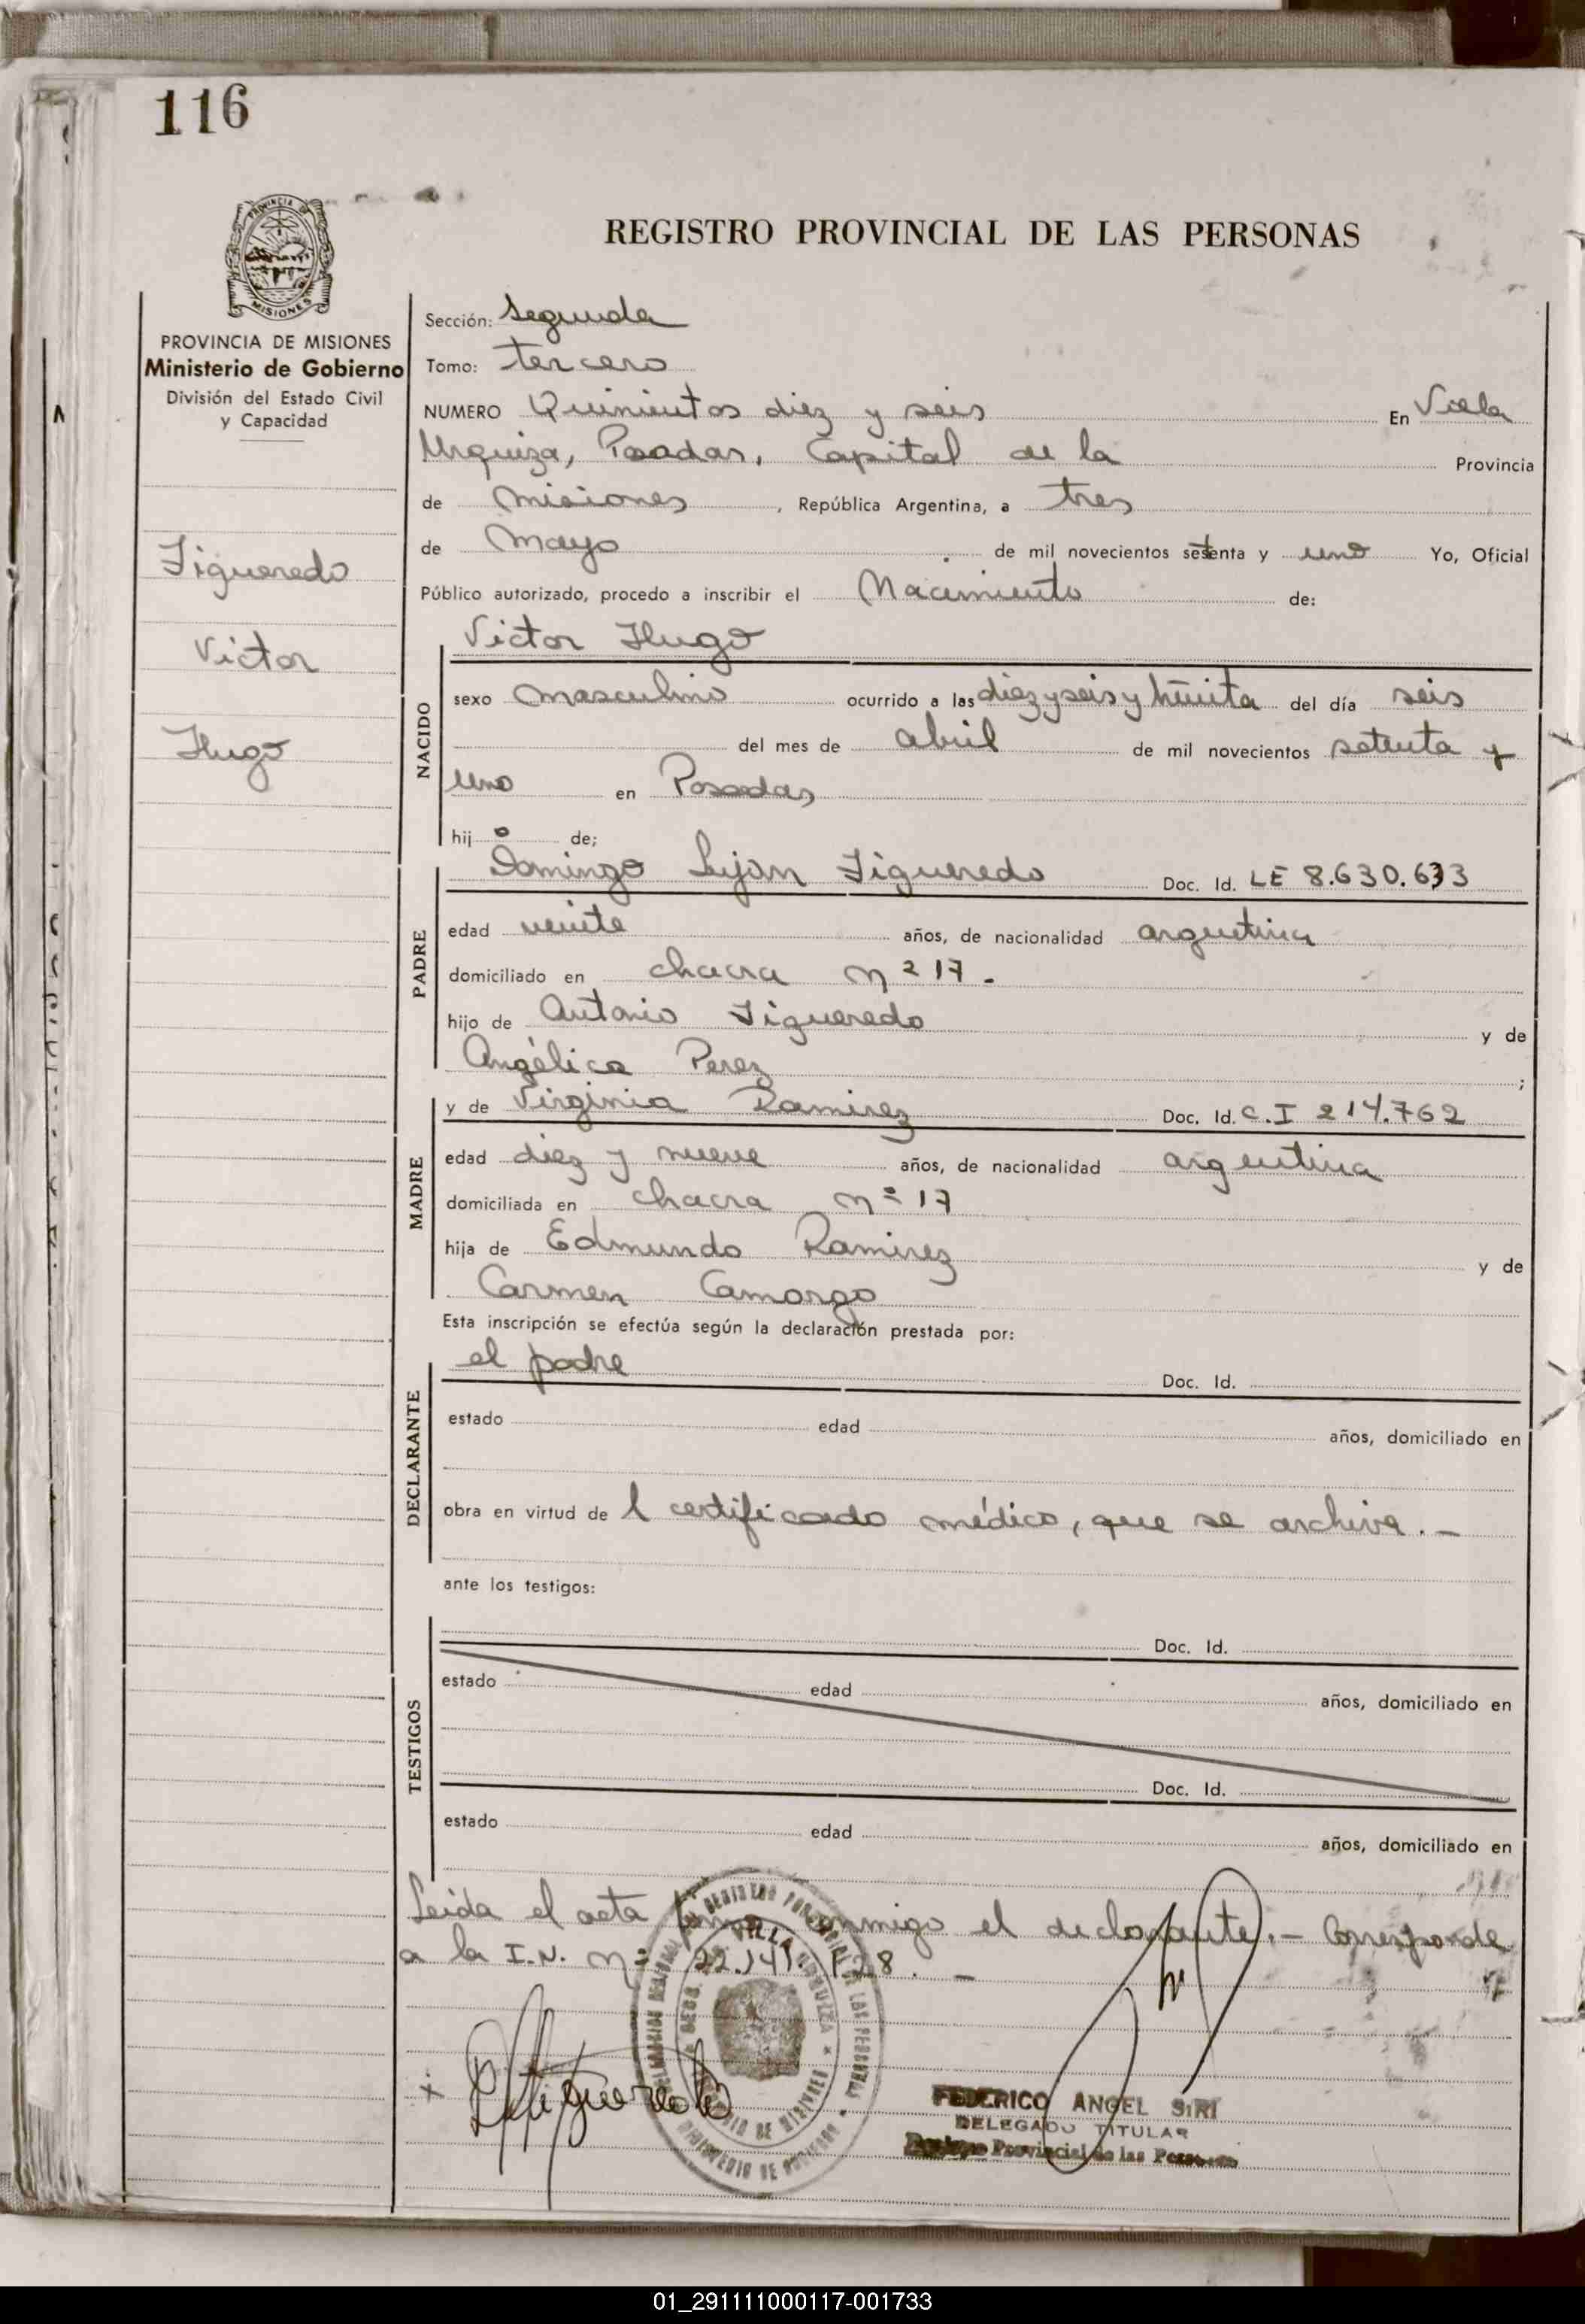 116
PROVINCIA DE
MISIONES
REGISTRO PROVINCIAL DE LAS PERSONAS
PROVINCIA DE MISIONES
Ministerio de Gobierno
División del Estado Civil
y Capacidad
Figueredo
Victor
Hugo
Sección: Segunda
Tomo: tercero
NUMERO Quinientos diez y seis En Villa
Urquiza, Posadas, Capital de la Provincia
de Misiones, República Argentina, a tres
de Mayo de mil novecientos setenta y uno Yo, Oficial
Público autorizado, procedo a inscribir el Nacimiento de:
NACIDO
Victor Hugo
sexo masculino ocurrido a las diez y seis y treinta del día seis
del mes de abril de mil novecientos setenta y
uno en Posadas
hijo de;
PADRE
Domingo Lujan Figueredo Doc. Id. LE 8.630.633
edad veinte años, de nacionalidad argentina
domiciliado en chacra nº 17.
hijo de Antonio Figueredo y de
Angélica Perez ;
MADRE
y de Virginia Ramirez Doc. Id. C.I 214.762
edad diez y nueve años, de nacionalidad argentina
domiciliada en chacra nº 17
hija de Edmundo Ramirez y de
Carmen Camargo
Esta inscripción se efectúa según la declaración prestada por:
DECLARANTE
el padre Doc. Id.
estado edad años, domiciliado en
obra en virtud de l certificado médico, que se archiva.-
ante los testigos:
TESTIGOS
Doc. Id.
estado edad años, domiciliado en
Doc. Id.
estado edad años, domiciliado en
Leida el acta firma conmigo el declarante.- Corresponde
a la I.N. nº 22.141.128.-
VILLA URQUIZA
FEDERICO ANGEL SIRI
DELEGADO TITULAR
Provincial de las Personas
01_291111000117-001733